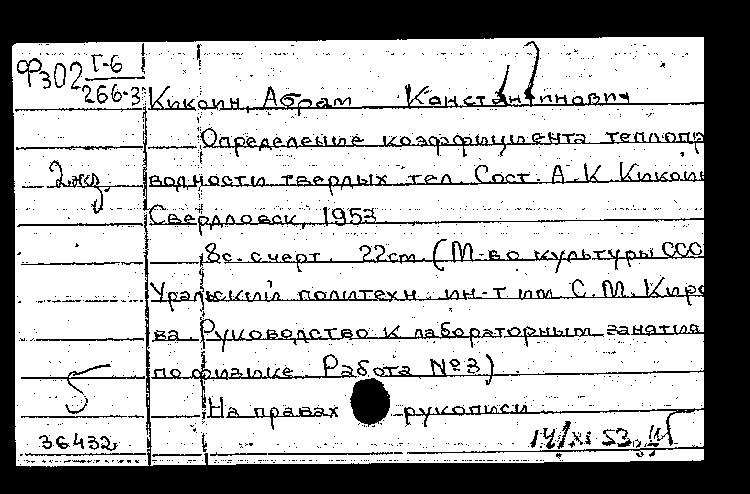 Фз02 Г-6
266-3
Кикоин, Абрам Константинович
Определение коэффициента теплопр
2 экз.
водности твердых тел. Сост. А.К. Кикоин
Свердловск, 1953
8с. с черт. 22см. (М-во культуры ССС
Уральский политехн. ин-т им. С.М. Киро
ва. Руководство к лабораторным занятиям
по физике. Работа №3)
5
На правах рукописи
36432
14/XI 53